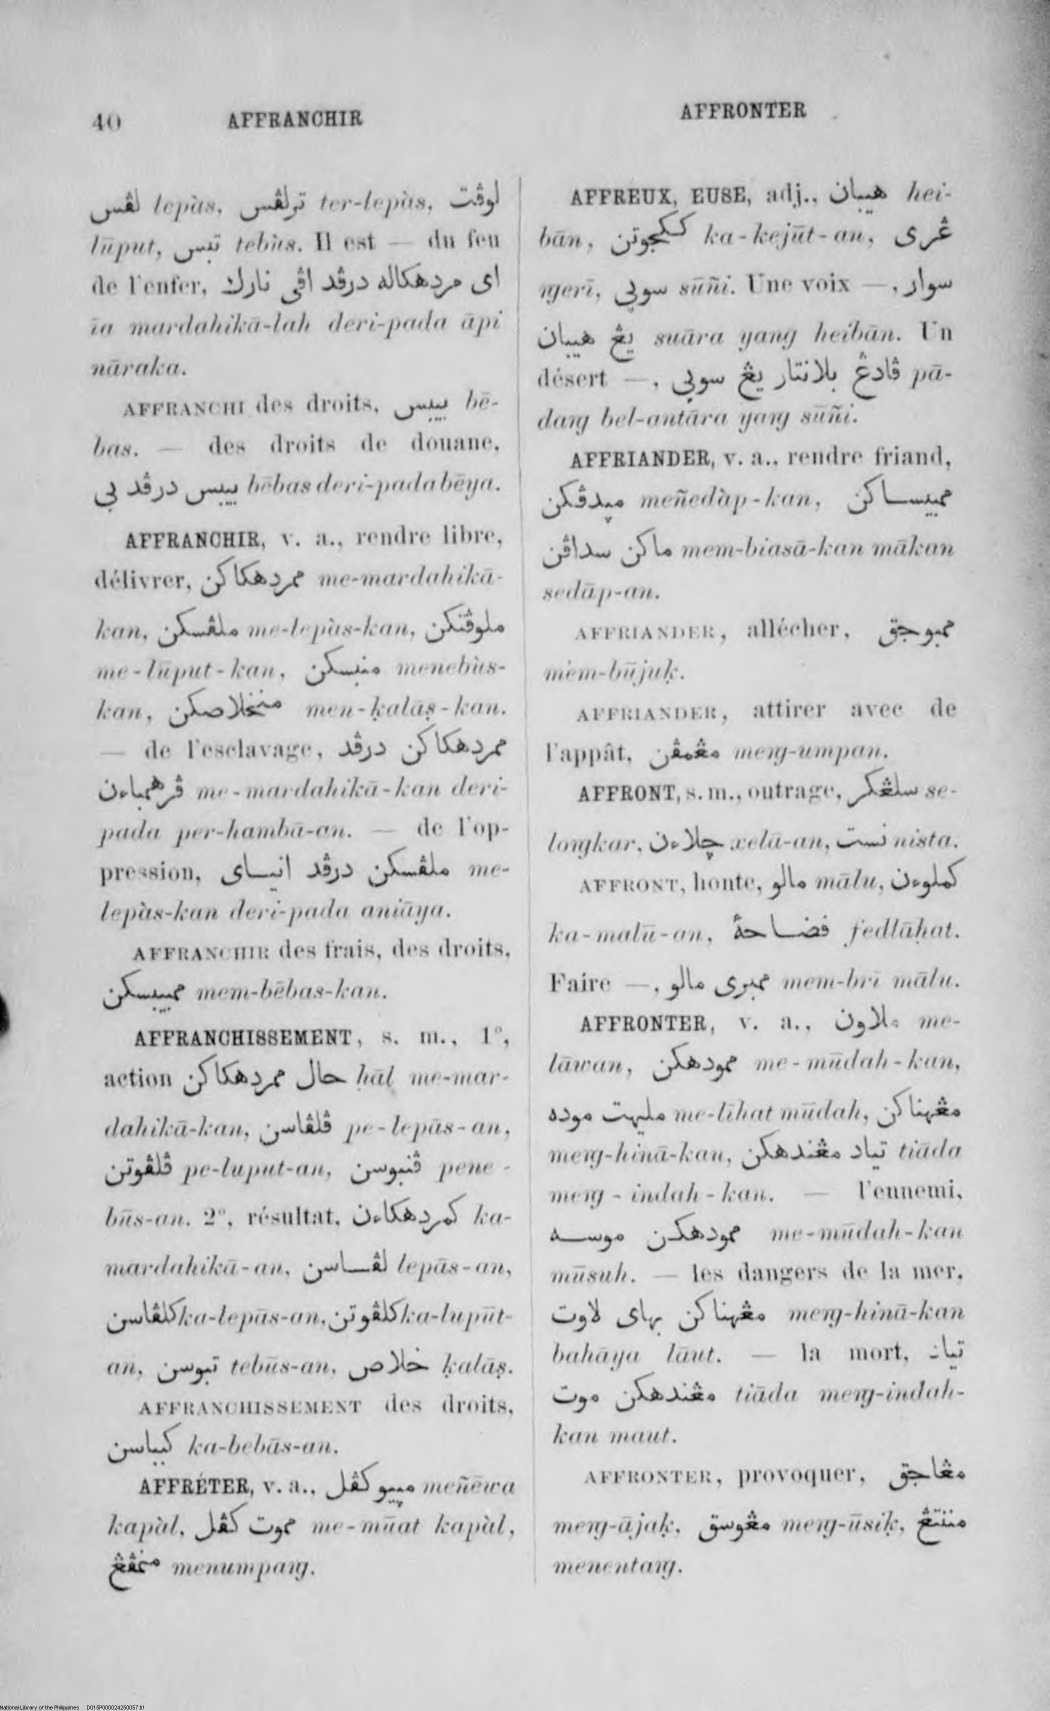 40 AFFRANCHIR AFFRONTER
لڤس lepàs, ترلڤس ter-lepàs, لوڤت
lūput, تبس tebùs. Il est — du feu
de l'enfer, اى مردهكاله درڤد اڤى نارك
īa mardahikā-lah deri-pada āpi
nāraka.
AFFRANCHI des droits, بيبس bē-
bas. — des droits de douane,
بيبس درڤد بي bēbas deri-pada bēya.
AFFRANCHIR, v. a., rendre libre,
délivrer, ممردهكاكن me-mardahikā-
kan, ملڤسكن me-lepàs-kan, ملوڤتكن
me-lūput-kan, منبسكن menebùs-
kan, منخلاصكن men-ḳalāṣ-kan.
— de l'esclavage, ممردهكاكن درڤد
ڤرهمباءن me-mardahikā-kan deri-
pada per-hambā-an. — de l'op-
pression, ملڤسكن درڤد انياى me-
lepàs-kan deri-pada aniāya.
AFFRANCHIR des frais, des droits,
ممبيبسكن mem-bēbas-kan.
AFFRANCHISSEMENT, s. m., 1°,
action حال ممردهكاكن ḥāl me-mar-
dahikā-kan, ڤلڤاسن pe-lepās-an,
ڤلڤوتن pe-luput-an, ڤنبوسن pene-
būs-an. 2°, résultat, كمردهكاءن ka-
mardahikā-an, لڤاسن lepās-an,
كلڤاسن ka-lepās-an, كلڤوتن ka-lupūt-
an, تبوسن tebūs-an, خلاص ḳalāṣ.
AFFRANCHISSEMENT des droits,
كبباسن ka-bebās-an.
AFFRÉTER, v. a., ميڽيو كڤل meñēwa
kapàl, مموت كڤل me-mūat kapàl,
منمڤڠ menumpaŋ.
AFFREUX, EUSE, adj., هيبان hei-
bān, ككجوتن ka-kejūt-an, ڠرى
ŋerī, سوڽي sūñi. Une voix —, سوار
يڠ هيبان suāra yaŋ heibān. Un
désert —, ڤادڠ بلانتار يڠ سوڽي pā-
daŋ bel-antāra yaŋ sūñi.
AFFRIANDER, v. a., rendre friand,
meñedàp-kan, ممبيساكن
ماكن سداڤن mem-biasā-kan mākan
sedāp-an.
AFFRIANDER, allécher, ممبوجق
mem-būjuḳ.
AFFRIANDER, attirer avec de
l'appât, مڠمڤن meŋ-umpan.
AFFRONT, s. m., outrage, سلڠكر se-
loŋkar, چلاءن xelā-an, نست nista.
AFFRONT, honte, مالو mālu, كملوءن
ka-malū-an, فضاحة fedlāḥat.
Faire —, ممبرى مالو mem-brī mālu.
AFFRONTER, v. a., ملاون me-
lāwan, ممودهكن me-mūdah-kan,
مليهت موده me-līhat mūdah, مڠهناكن
meŋ-hinā-kan, تياد مڠندهكن tiāda
meŋ-indah-kan. — l'ennemi,
ممودهكن موسه me-mūdah-kan
mūsuh. — les dangers de la mer,
مڠهناكن بهاى لاوت meŋ-hinā-kan
bahāya lāut. — la mort, تياد
مڠندهكن موت tiāda meŋ-indah-
kan maut.
AFFRONTER, provoquer, مڠاجق
meŋ-ājaḳ, مڠوسق meŋ-ūsiḳ, مننتڠ
menentaŋ.
National Library of the Philippines